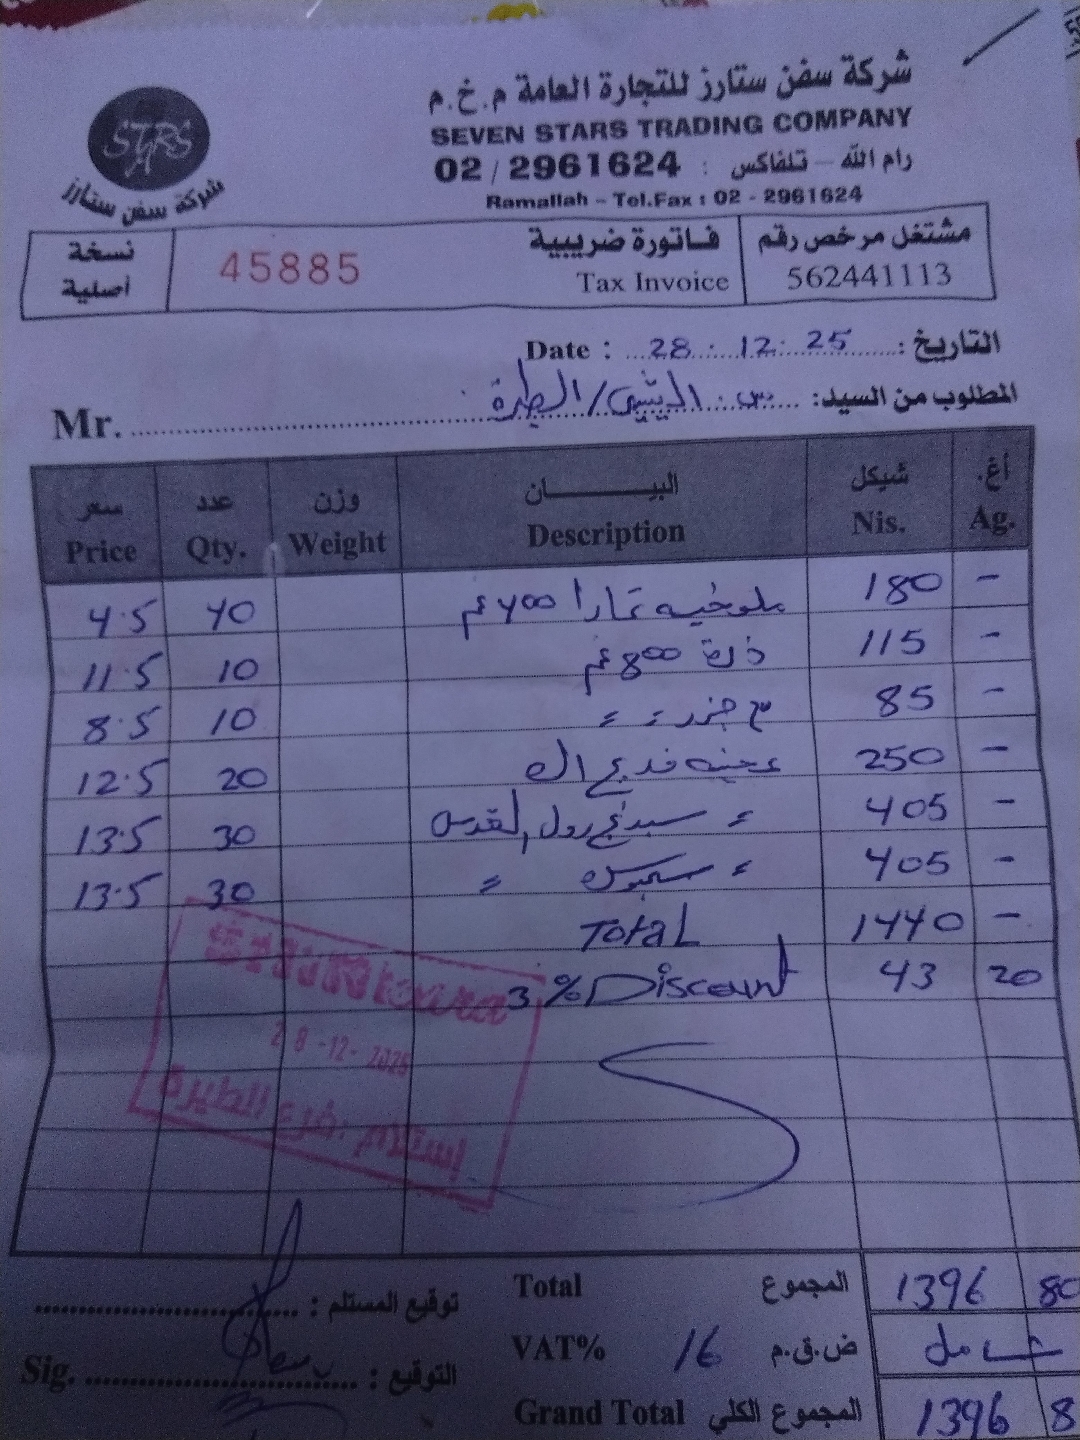 شركة سفن ستارز للتجارة العامة م.خ.م
SEVEN STARS TRADING COMPANY
رام الله - تلفاكس : 02 / 2961624
Ramallah - Tel.Fax : 02 - 2961624
STARS
شركة سفن ستارز
مشتغل مرخص رقم
562441113
فاتورة ضريبية
Tax Invoice
45885
نسخة أصلية
التاريخ : 25 . 12 . 28 Date :
المطلوب من السيد: / الطيرة
Mr.
أغ. شيكل البيـــان وزن عدد سعر
Ag. Nis. Description Weight Qty. Price
- 180 ملوخيه 400 غم 40 4.5
- 115 ذرة 800 غم 10 11.5
- 85 جزر 〃 〃 10 8.5
- 250 عجينه 20 12.5
- 405 〃 رول القدس 30 13.5
- 405 〃 〃 30 13.5
- 1440 Total
20 43 3% Discount
28-12-2025
Total المجموع 1396 80
VAT% 16 ض.ق.م شامل
Grand Total المجموع الكلي 1396 8
توقيع المستلم :
Sig. التوقيع :